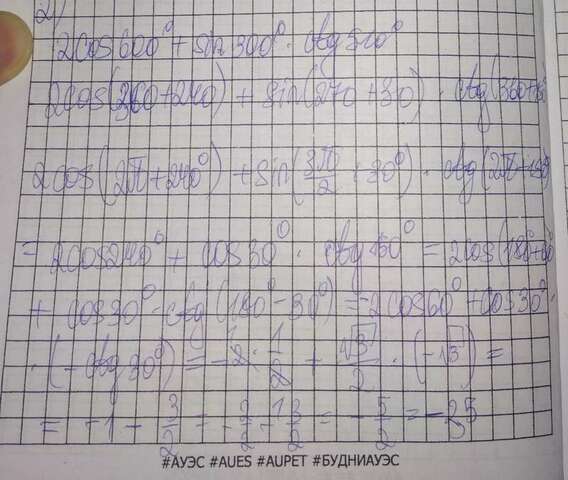 2)
2cos600° + sin 300° · ctg 510°
2cos(360+240) + sin(270+30) · ctg(360+
2cos(2π+240°) + sin(3π/2 + 30°) · ctg(2π+150
= 2cos240° + cos30° · ctg150° = 2cos(180°+60°
+ cos30° · ctg(180°-30°) = -2cos60° + cos30° ·
· (-ctg30°) = -2 · 1/2 + √3/2 · (-√3) =
= -1 - 3/2 = -2/2 - 3/2 = -5/2 = -2,5
#АУЭС #AUES #AUPET #БУДНИАУЭС